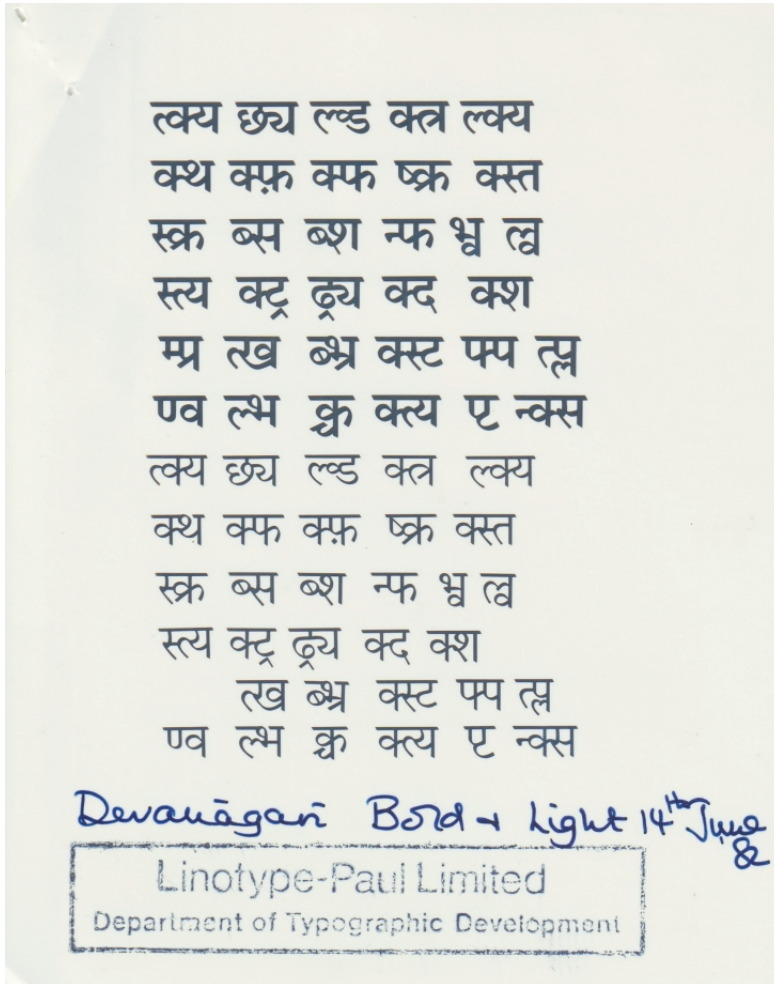 त्क्य छ्य ल्ड क्त्र ल्क्य
क्थ क्फ़ क्फ ष्क्र क्स्त
स्क्र ब्स ब्श न्फ भ्व ल्व
स्त्य क्ट्र ढ्र्य क्द क्श
म्प्र त्ख ब्भ्र क्स्ट फ्प त्प्ल
ण्व ल्भ क्च क्त्य प्ट न्क्स
त्क्य छ्य ल्ड क्त्र ल्क्य
क्थ क्फ क्फ़ ष्क्र क्स्त
स्क्र ब्स ब्श न्फ भ्व ल्व
स्त्य क्ट्र ढ्र्य क्द क्श
त्ख ब्भ्र क्स्ट फ्प त्प्ल
ण्व ल्भ क्च क्त्य प्ट न्क्स
Devanāgarī Bold + Light 14th June 82
Linotype-Paul Limited
Department of Typographic Development